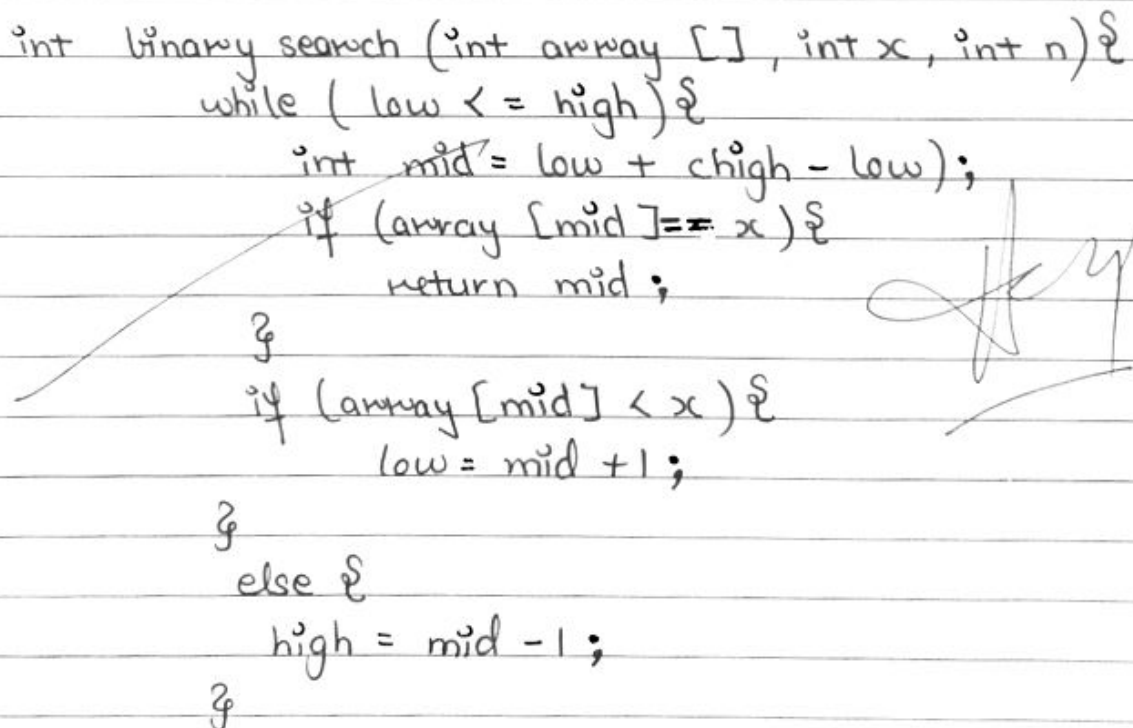 int binary search (int array [ ] , int x, int n){
while ( low < = high){
int mid = low + chigh - low);
if (array [mid ]== x){
return mid ;
}
if (array [mid] < x){
low = mid +1 ;
}
else {
high = mid -1 ;
}